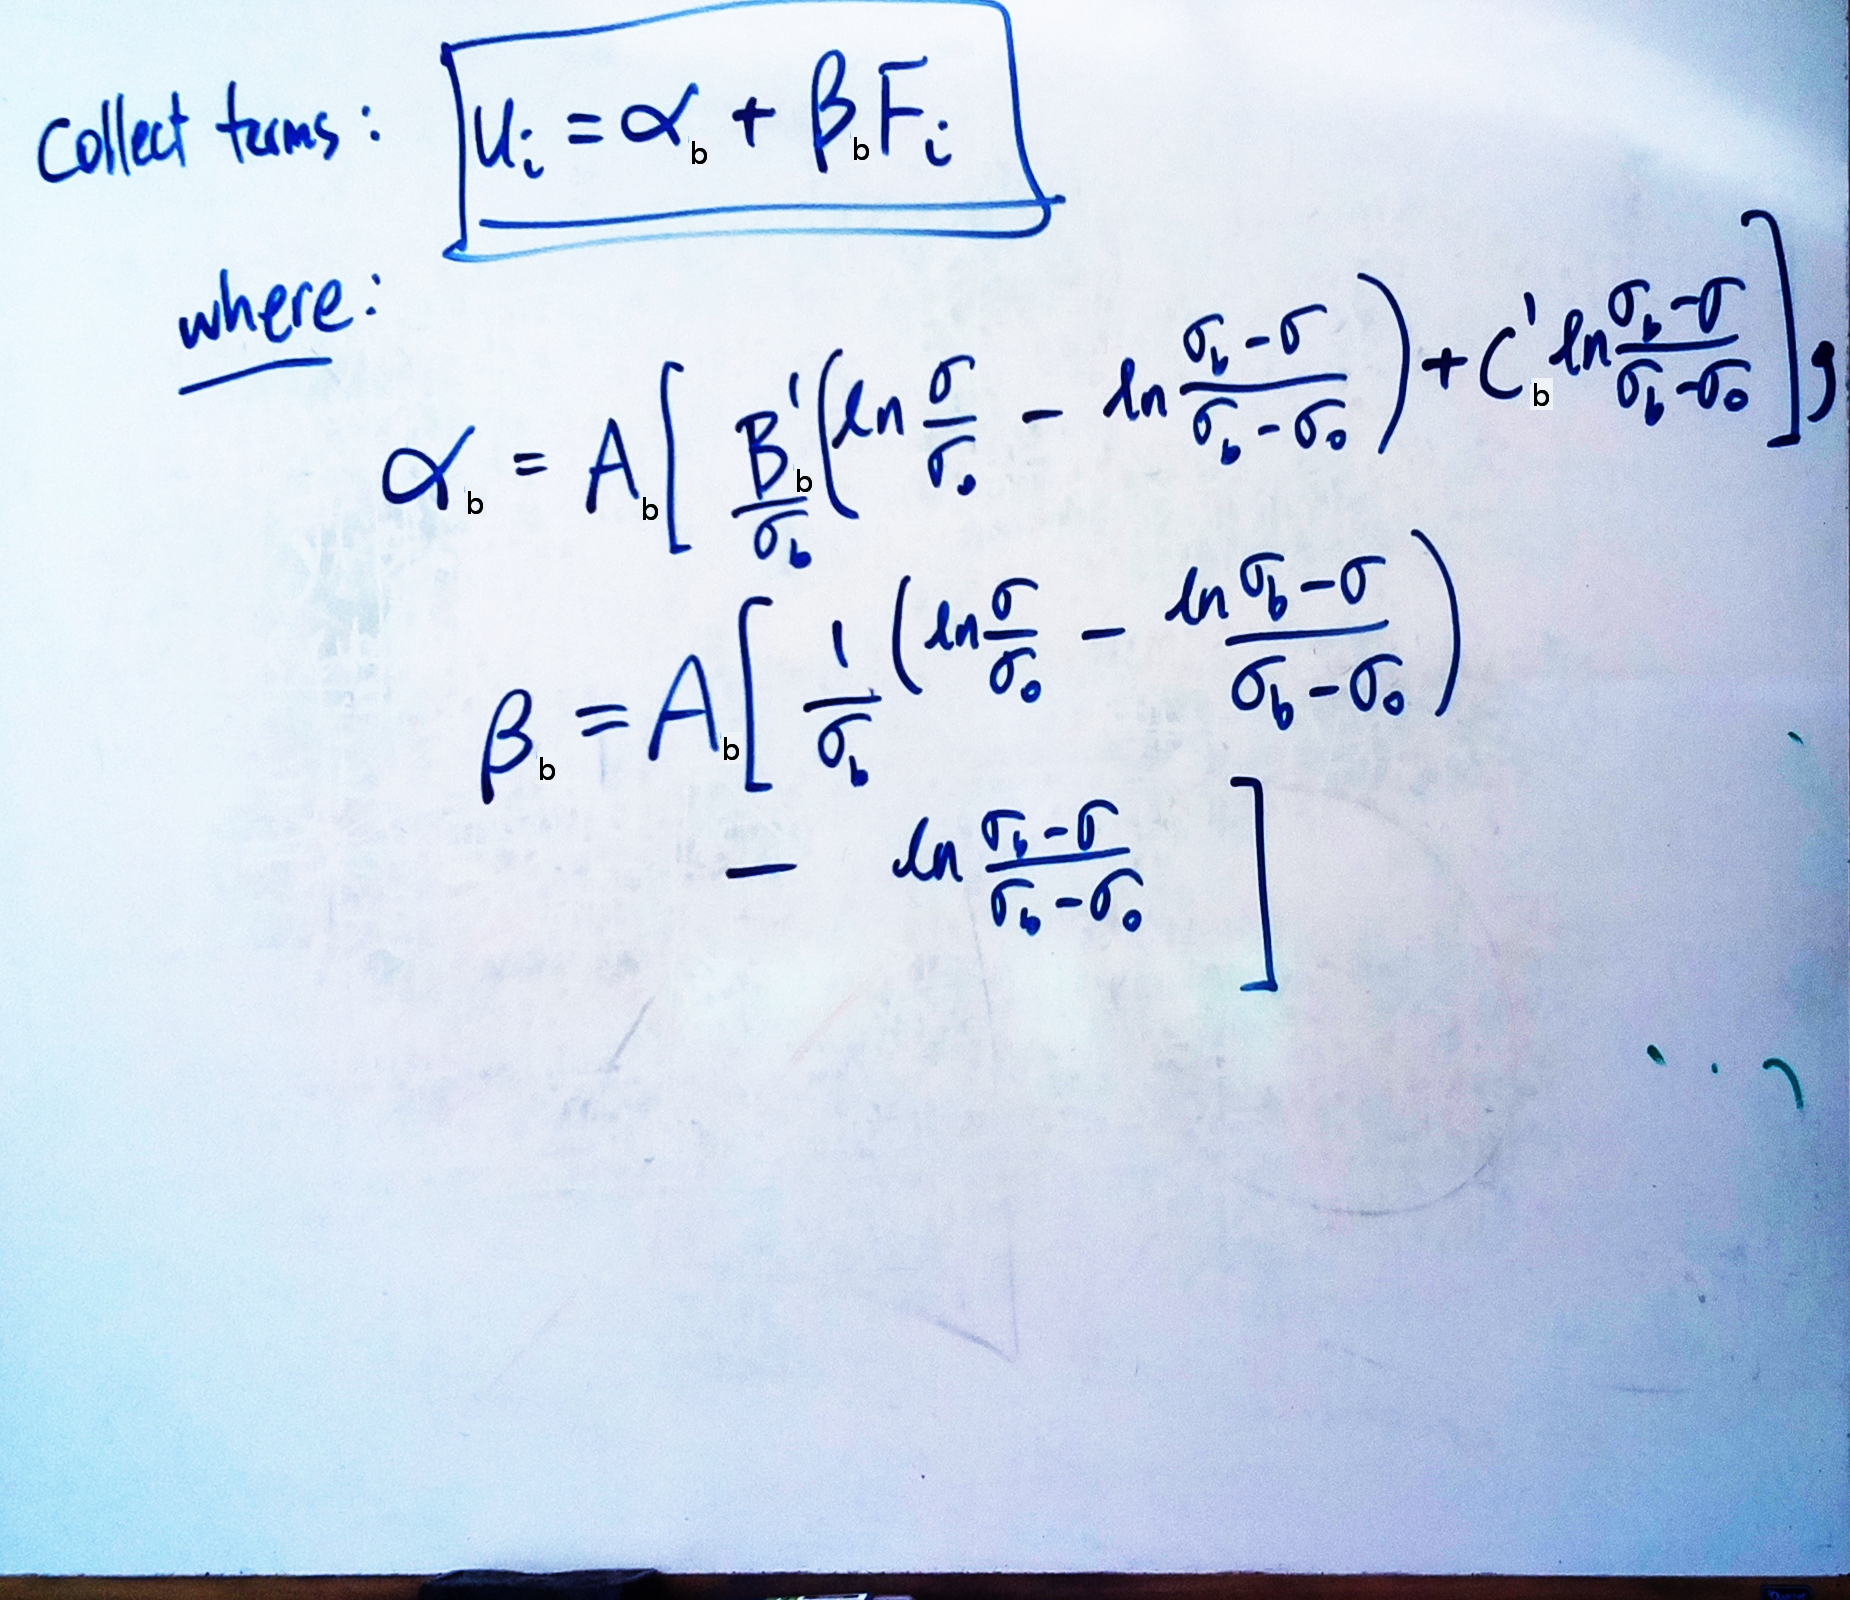 Collect terms: u_i = α_b + β_b F_i
where:
α_b = A_b [ B'_b/σ_b ( ln σ/σ_0 - ln (σ_b - σ)/(σ_b - σ_0) ) + C'_b ln (σ_b - σ)/(σ_b - σ_0) ] g
β_b = A_b [ 1/σ_b ( ln σ/σ_0 - ln (σ_b - σ)/(σ_b - σ_0) )
- ln (σ_b - σ)/(σ_b - σ_0) ]